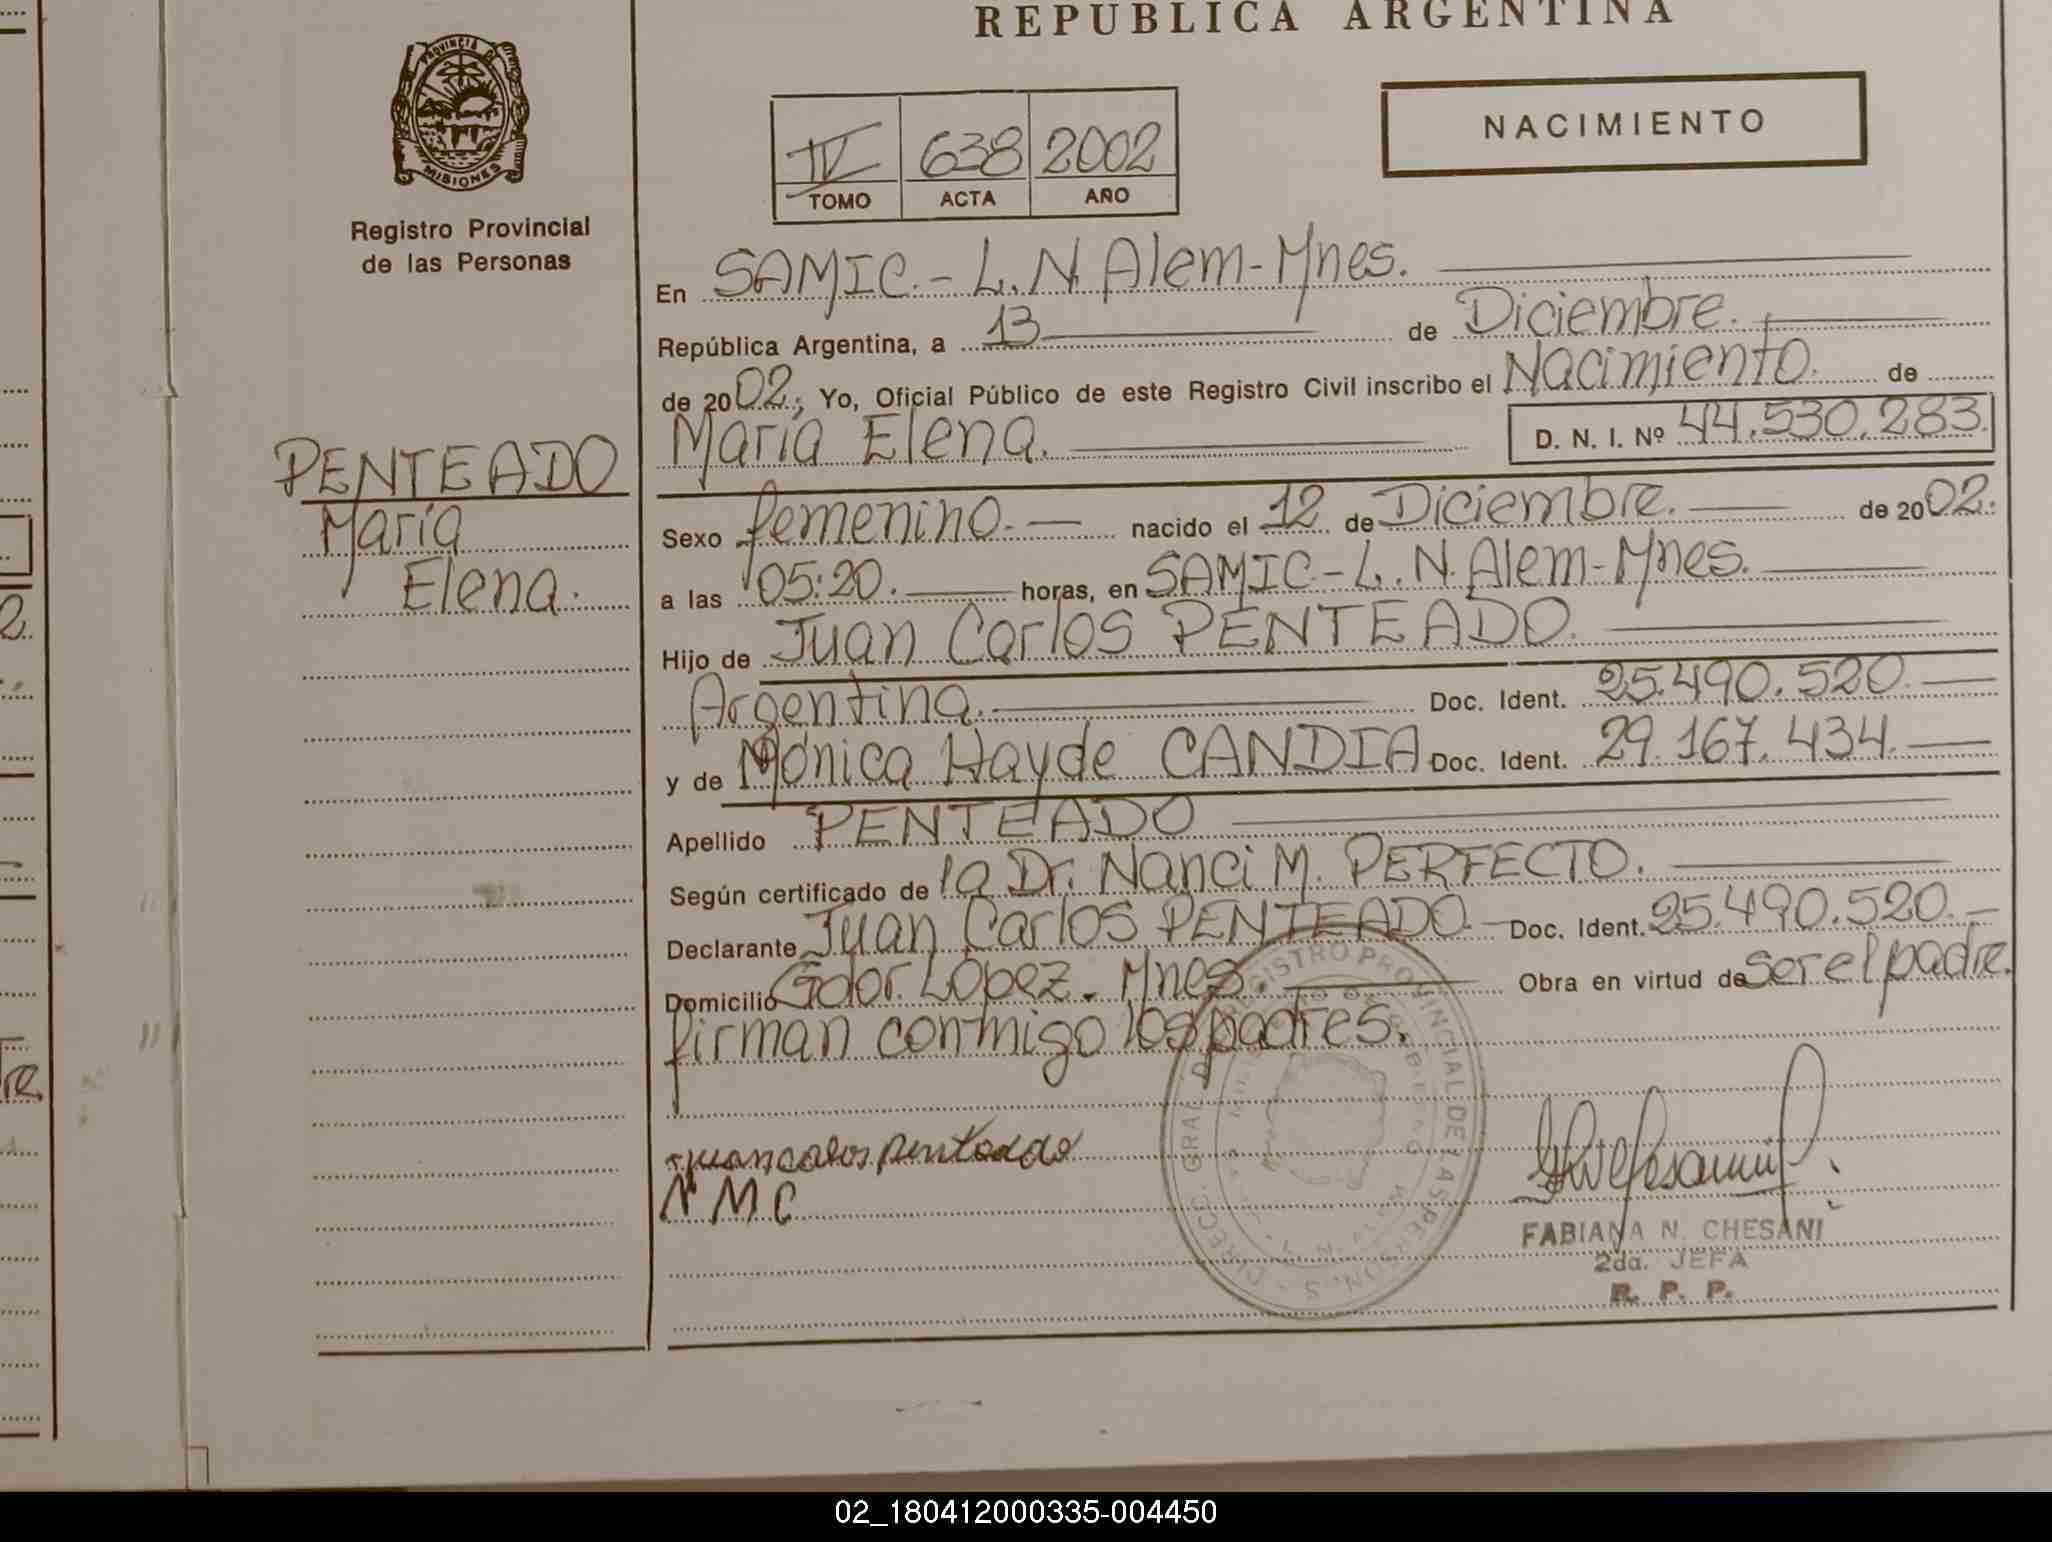 REPUBLICA ARGENTINA
PROVINCIA DE
MISIONES
Registro Provincial
de las Personas
IV 638 2002
TOMO ACTA AÑO
NACIMIENTO
En SAMIC.- L.N. Alem-Mnes.
República Argentina, a 13 de Diciembre.
de 2002; Yo, Oficial Público de este Registro Civil inscribo el Nacimiento. de
María Elena. D. N. I. Nº 44.530.283.
PENTEADO
María
Elena.
Sexo femenino.- nacido el 12 de Diciembre. de 2002.
a las 05:20. horas, en SAMIC.-L.N. Alem-Mnes.
Hijo de Juan Carlos PENTEADO.
Argentina. Doc. Ident. 25.490.520.
y de Mónica Hayde CANDIA Doc. Ident. 29.167.434.
Apellido PENTEADO
Según certificado de la Dr. Nanci M. PERFECTO.
Declarante Juan Carlos PENTEADO Doc. Ident. 25.490.520.-
Domicilio Gdor. López. Mnes. Obra en virtud de ser el padre.
firman conmigo los padres.
juan calos penteado
N M C
FABIANA N. CHESANI
2da. JEFA
R. P. P.
02_180412000335-004450